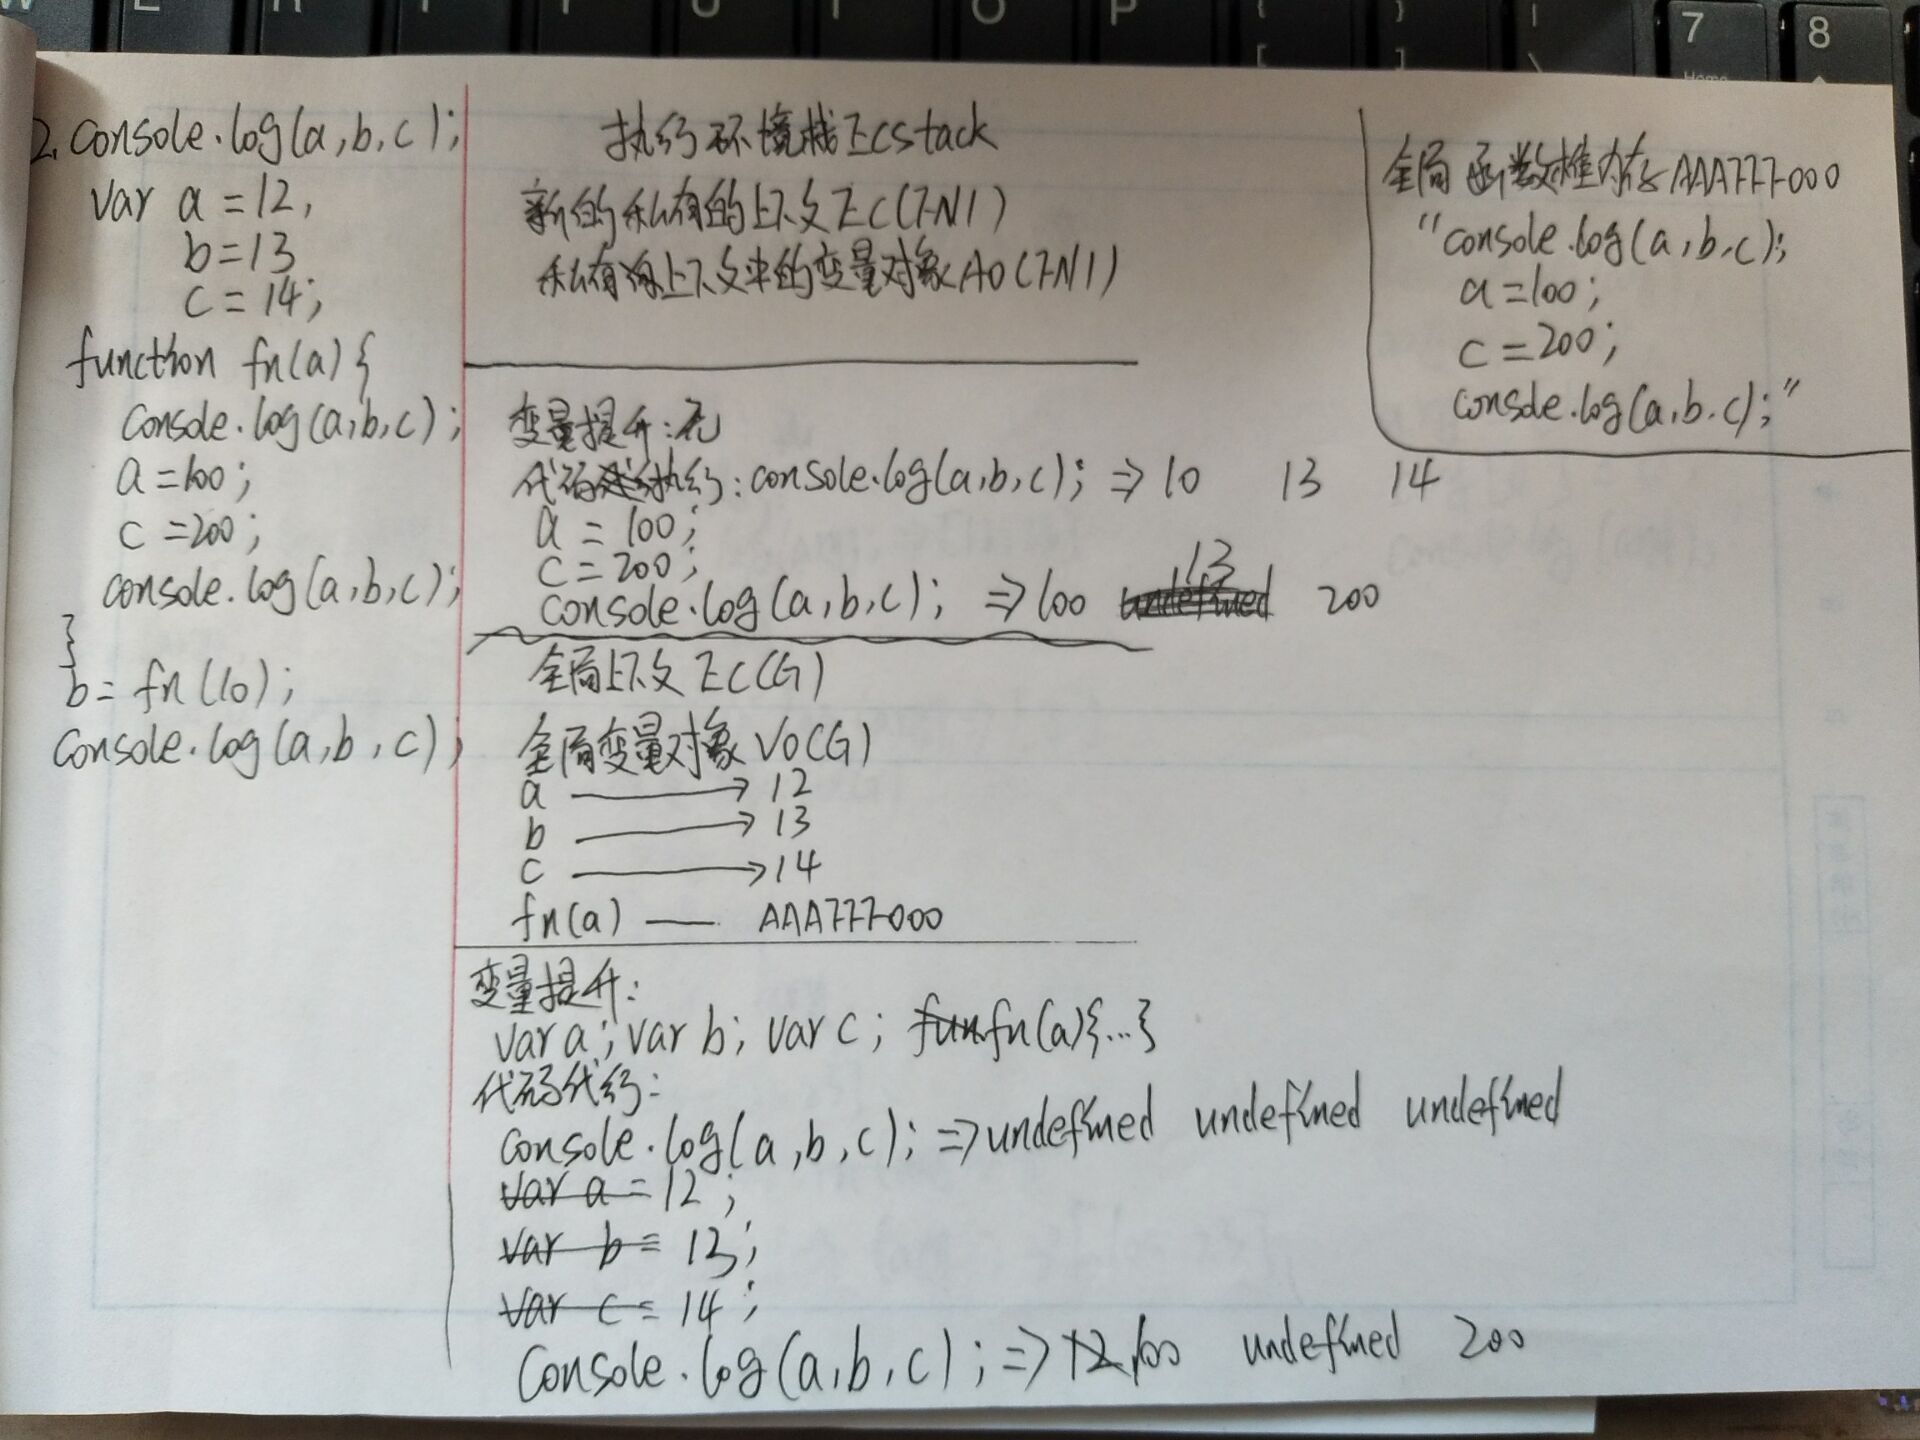 2. console.log(a,b,c);
var a = 12,
b=13
c = 14;
function fn(a){
console.log(a,b,c);
a=100;
c=200;
console.log(a,b,c);
}
b= fn(10);
console.log(a,b,c);
执行环境栈ECStack
新的私有的上下文EC(FN1)
私有的上下文中的变量对象AO(FN1)
变量提升:无
代码执行:console.log(a,b,c); => 10 13 14
a = 100;
c = 200;
console.log(a,b,c); => 100 undefined 13 200
全局上下文EC(G)
全局变量对象VO(G)
a → 12
b → 13
c → 14
fn(a) — AAAFFF000
变量提升:
var a; var b; var c; fun fn(a){...}
代码代行:
console.log(a,b,c); => undefined undefined undefined
var a = 12;
var b = 13;
var c = 14;
console.log(a,b,c); => 12 100 undefined 200
全局函数堆内存AAAFFF000
"console.log(a,b,c);
a=100;
c=200;
console.log(a,b.c);"
W E R T Y U I O P { [ } ] | \ 7 Home 8